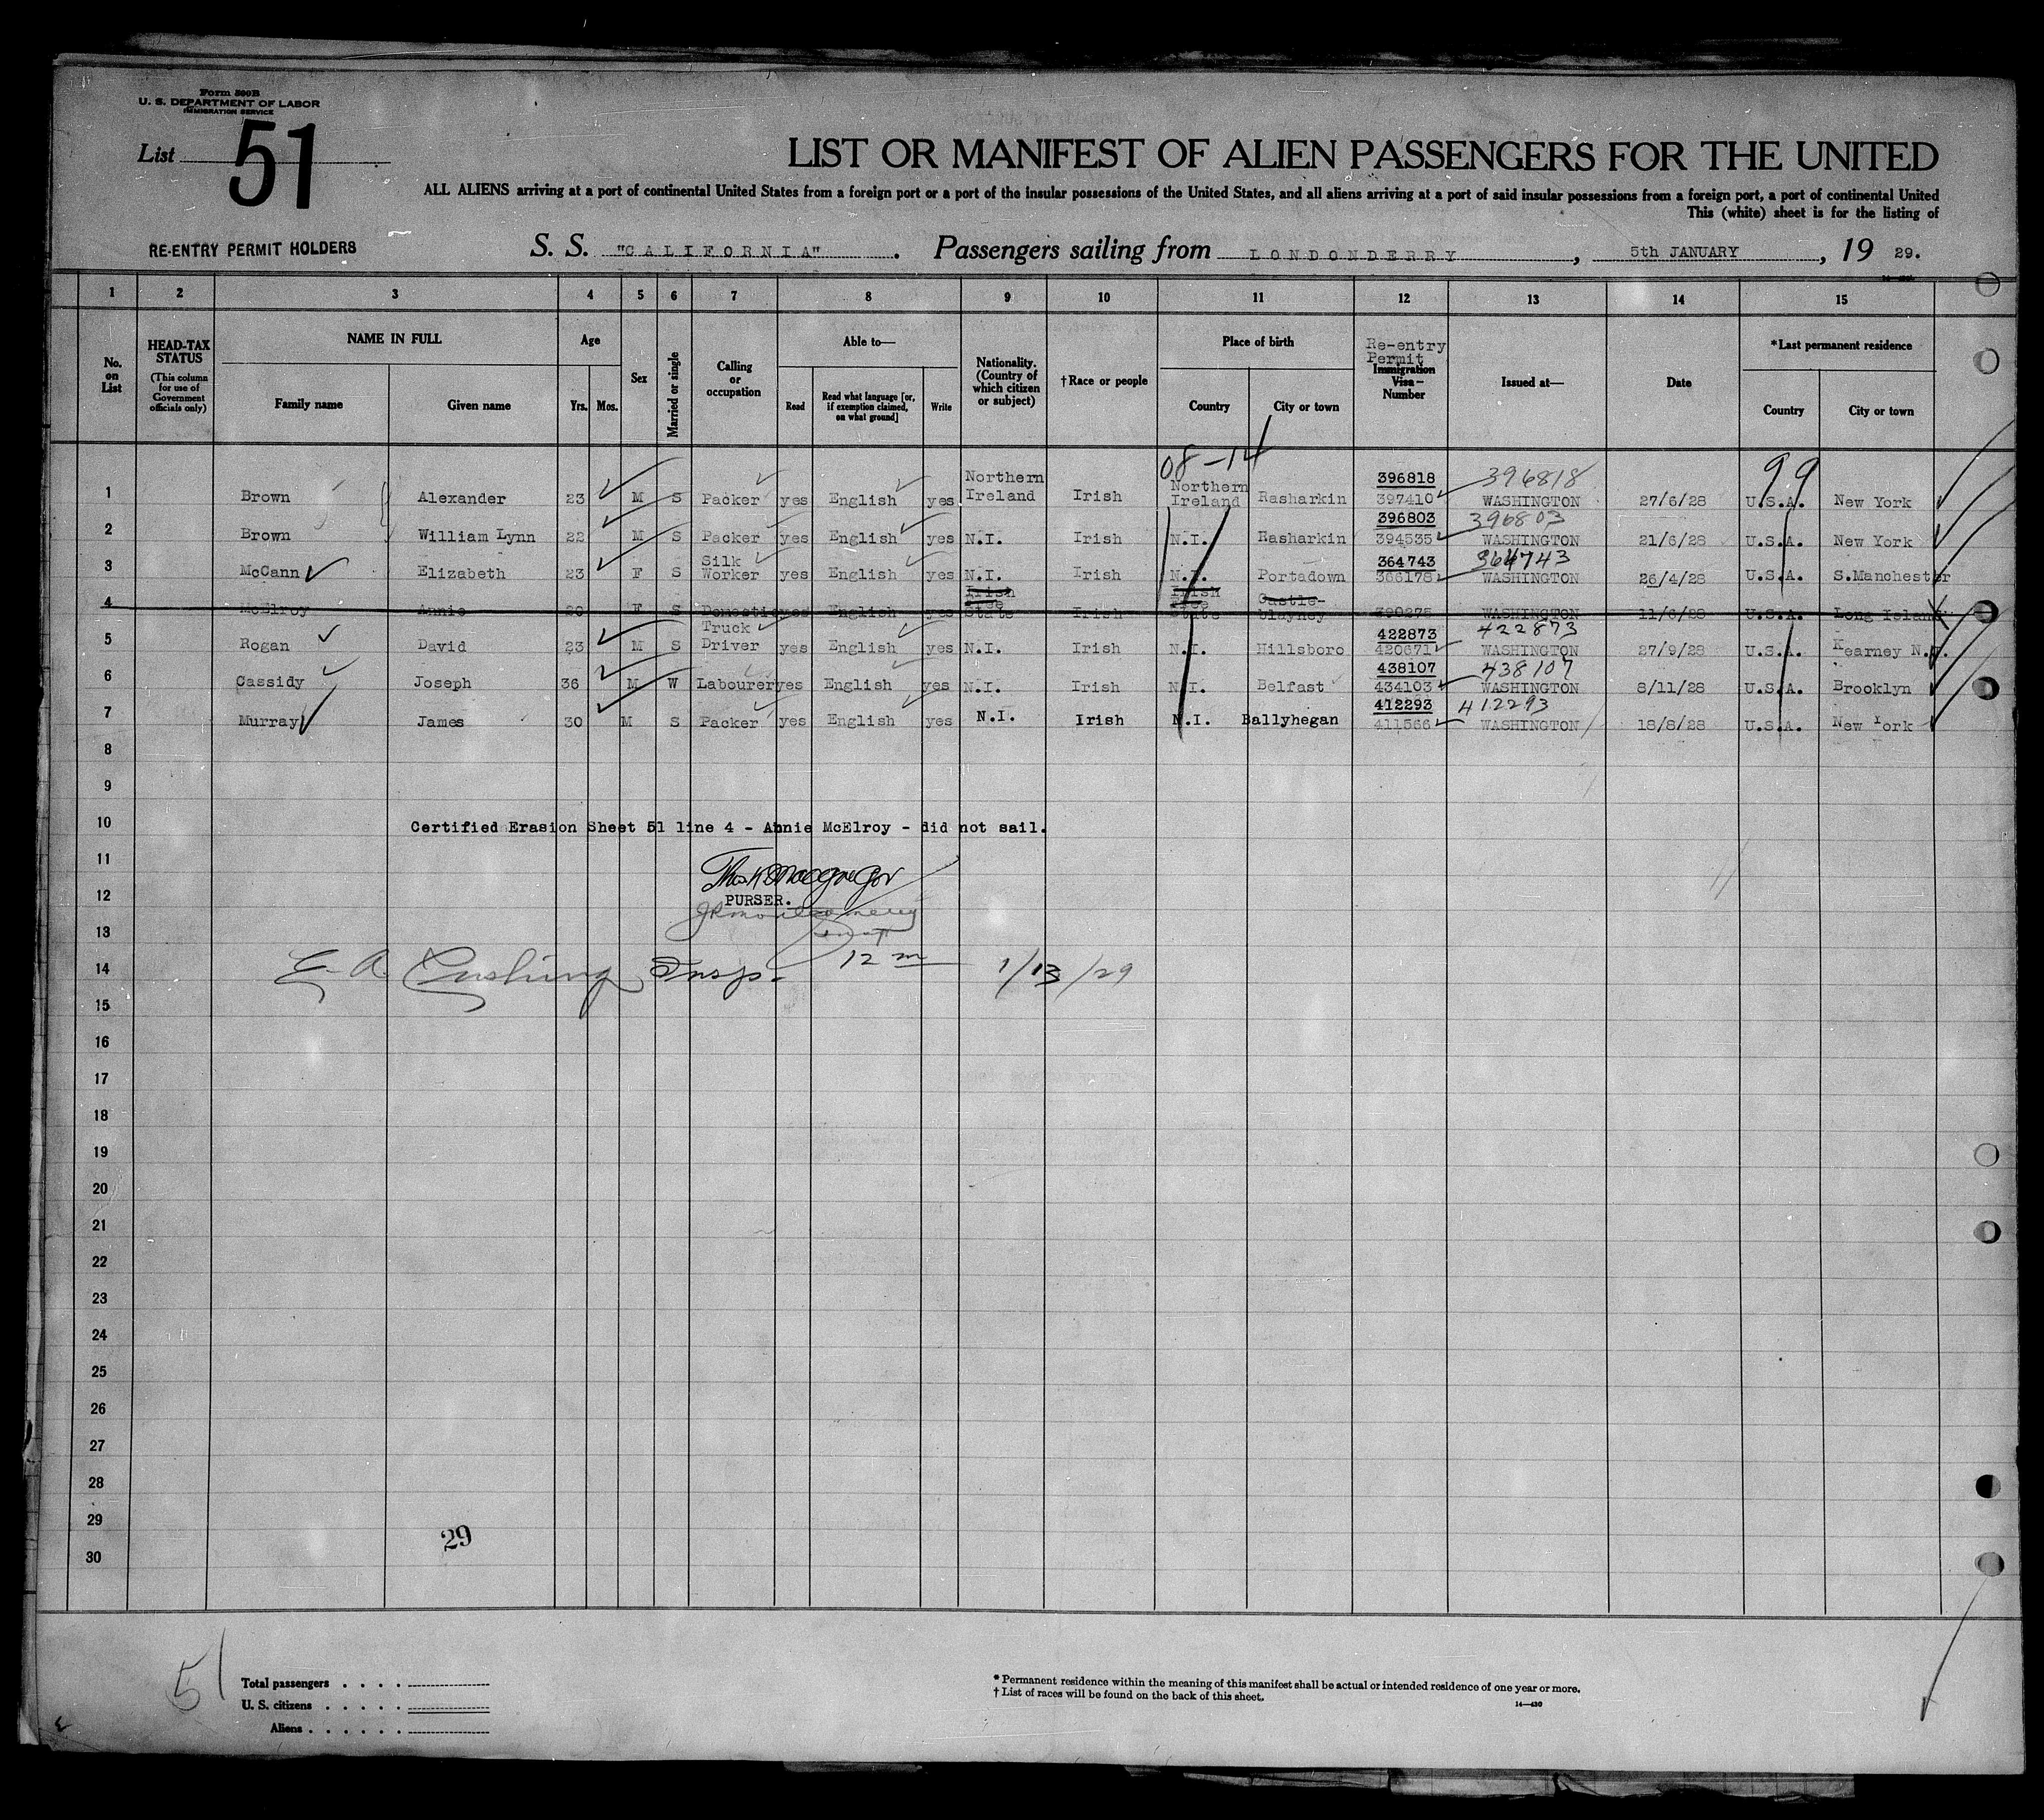 Form 500B
U. S. DEPARTMENT OF LABOR
IMMIGRATION SERVICE
List 51
LIST OR MANIFEST OF ALIEN PASSENGERS FOR THE UNITED
ALL ALIENS arriving at a port of continental United States from a foreign port or a port of the insular possessions of the United States, and all aliens arriving at a port of said insular possessions from a foreign port, a port of continental United
This (white) sheet is for the listing of
RE-ENTRY PERMIT HOLDERS S. S. "CALIFORNIA". Passengers sailing from LONDONDERRY, 5th JANUARY, 19 29.
1 2 3 4 5 6 7 8 9 10 11 12 13 14 15
No. on List
HEAD-TAX STATUS (This column for use of Government officials only)
NAME IN FULL
Family name Given name
Age
Yrs. Mos.
Sex
Married or single
Calling or occupation
Able to—
Read Read what language [or, if exemption claimed, on what ground] Write
Nationality. (Country of which citizen or subject)
†Race or people
Place of birth
Country City or town
Re-entry Permit
Immigration Visa Number
Issued at—
Date
*Last permanent residence
Country City or town
08-14 99
1 Brown Alexander 23 M S Packer yes English yes Northern Ireland Irish Northern Ireland Rasharkin 396818 397410 396818 WASHINGTON 27/6/28 U.S.A. New York
2 Brown William Lynn 22 M S Packer yes English yes N.I. Irish N.I. Rasharkin 396803 394535 396803 WASHINGTON 21/6/28 U.S.A. New York
3 McCann Elizabeth 23 F S Silk Worker yes English yes N.I. Irish N.I. Portadown 364743 366178 364743 WASHINGTON 26/4/28 U.S.A. S.Manchester
4 McElroy Annie 20 F S Domestic yes English yes Irish Free State Irish Irish Free State Castle-blayney 390275 WASHINGTON 11/6/28 U.S.A. Long Island
5 Rogan David 23 M S Truck Driver yes English yes N.I. Irish N.I. Hillsboro 422873 420671 422873 WASHINGTON 27/9/28 U.S.A. Kearney N.J.
6 Cassidy Joseph 36 M W Labourer yes English yes N.I. Irish N.I. Belfast 438107 434103 438107 WASHINGTON 8/11/28 U.S.A. Brooklyn
7 Murray James 30 M S Packer yes English yes N.I. Irish N.I. Ballyhegan 412293 411566 412293 WASHINGTON 18/8/28 U.S.A. New York
8
9
10 Certified Erasion Sheet 51 line 4 - Annie McElroy - did not sail.
11
12 PURSER.
13
14 E. A. Cushing Insp. 12 m 1/13/29
15
16
17
18
19
20
21
22
23
24
25
26
27
28
29
29
30
51
Total passengers
U. S. citizens
Aliens
* Permanent residence within the meaning of this manifest shall be actual or intended residence of one year or more.
† List of races will be found on the back of this sheet.
14—430